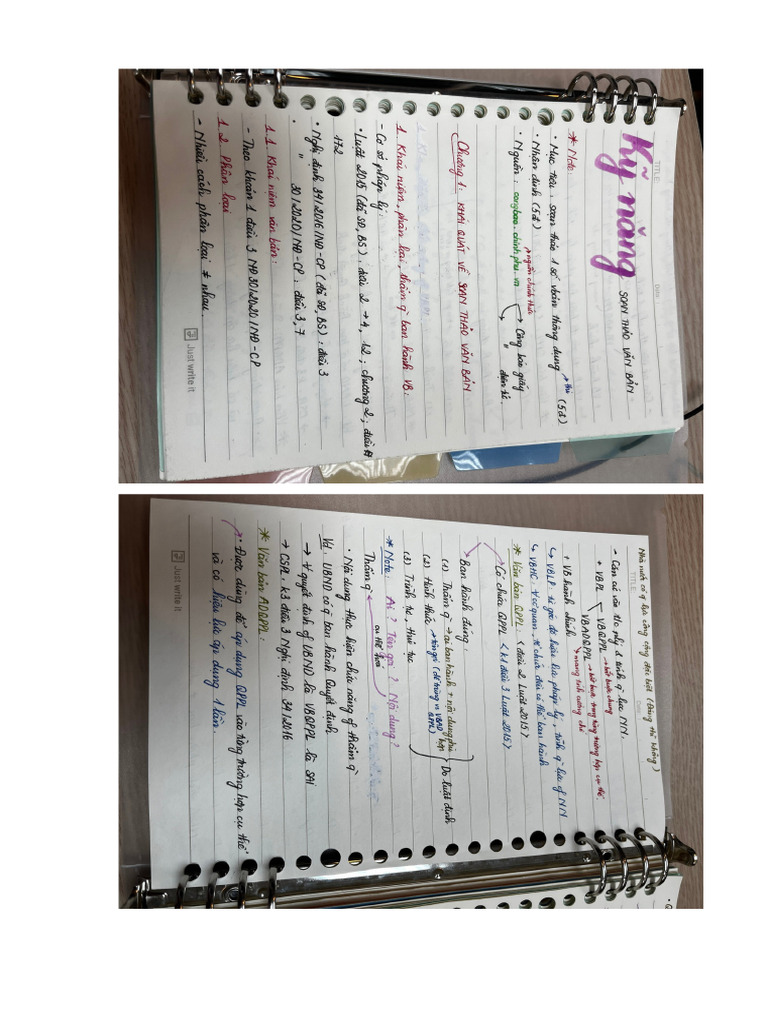 TITLE
DATE
Kỹ năng SOẠN THẢO VĂN BẢN
* Note:
• Mục tiêu: soạn thảo 1 số vbản thông dụng → thi (5đ)
• Nhận định (5đ)
→ nguồn chính thức
• Nguồn: congbao.chinhphu.vn → Công báo giấy
" điện tử.
Chương 1: KHÁI QUÁT VỀ SOẠN THẢO VĂN BẢN
1. Khái niệm, phân loại, thẩm q̀ ban hành VB:
- Cơ sở pháp lý:
• Luật 2015 (đã SĐ, BS): điều 2 → 4, 12; chương 2; điều
172
• Nghị định 34/2016/NĐ-CP (đã SĐ, BS): điều 3
• " 30/2020/NĐ-CP: điều 3, 7
1.1. Khái niệm văn bản:
- Theo khoản 1 điều 3 NĐ 30/2020/NĐ-CP
1.2. Phân loại
- Nhiều cách phân loại ≠ nhau.
Just write it
Nhà nước có q̀ lực công cộng đặc biệt (Đảng thì không)
TITLE
DATE
- Căn cứ vào t/c ply & tính q̀ lực NN.
+ VBPL VBQPPL → bắt buộc chung
VBADQPPL → bắt buộc trong từng trường hợp cụ thể.
→ mang tính cưỡng chế
+ VB hành chính
↳ VBLP: có hiệu lực pháp lý, tính q̀ lực of NN
↳ VBHC: ∀ cơ quan, tổ chức đều có thể ban hành
* Văn bản QPPL: (điều 2 Luật 2015)
Có chứa QPPL (k1 điều 3 Luật 2015)
Ban hành đúng:
(1) Thẩm q̀ → ai ban hành + nội dung phù hợp
(2) Hình thức → tên gọi (dễ trùng vs VBAD QPPL)
(3) Trình tự, thủ tục
Do luật định
* Note: Ai? Tên gọi? Nội dung?
Thẩm q̀ cụ thể hơn
• Nội dung thực hiện chức năng of thẩm q̀
Vd: UBND có q̀ ban hành Quyết định.
→ ∀ quyết định of UBND là VBQPPL là SAI
→ CSPL: k3 điều 3 Nghị định 34/2016
* Văn bản ADQPPL:
• Được dùng để áp dụng QPPL vào từng trường hợp cụ thể
và có hiệu lực áp dụng 1 lần.
Just write it